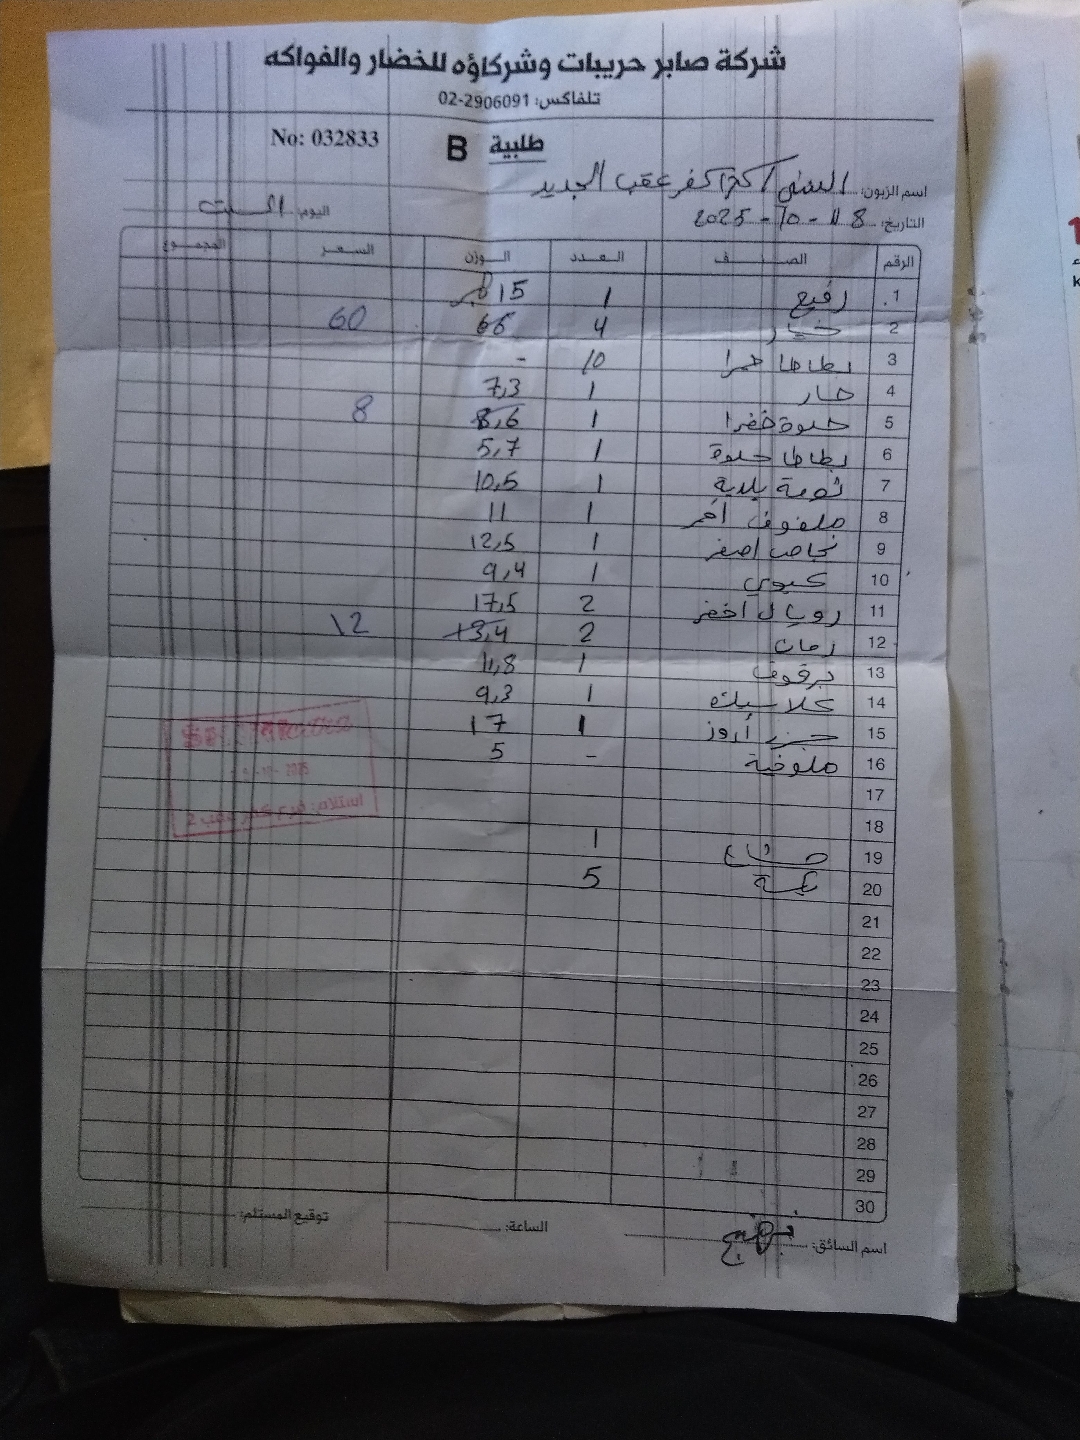 شركة صابر حريبات وشركاؤه للخضار والفواكه
تلفاكس: 02-2906091
طلبية B No: 032833
اسم الزبون: السني اكترا كفر عقب الجديد
التاريخ: 18-10-2025 اليوم: السبت
الرقم الصنف العدد الوزن السعر المجموع
1. رفيع 1 15
2 خيار 4 66 60
3 بطاطا حمرا 10 -
4 حار 1 7,3
5 حلوة خضرا 1 8,6 8
6 بطاطا حلوة 1 5,7
7 ثومة بلدية 1 10,5
8 ملفوف احمر 1 11
9 نجاص اصفر 1 12,5
10 كيوي 1 9,4
11 رويال اخضر 2 17,5
12 رمان 2 13,4 12
13 برقوق 1 11,8
14 كلاسيك 1 9,3
15 جزر أروز 1 17
16 ملوخية - 5
17
18
19 1
20 5
21
22
23
24
25
26
27
28
29
30
2025
استلام: فرع كفر عقب 2
اسم السائق: الساعة: توقيع المستلم: